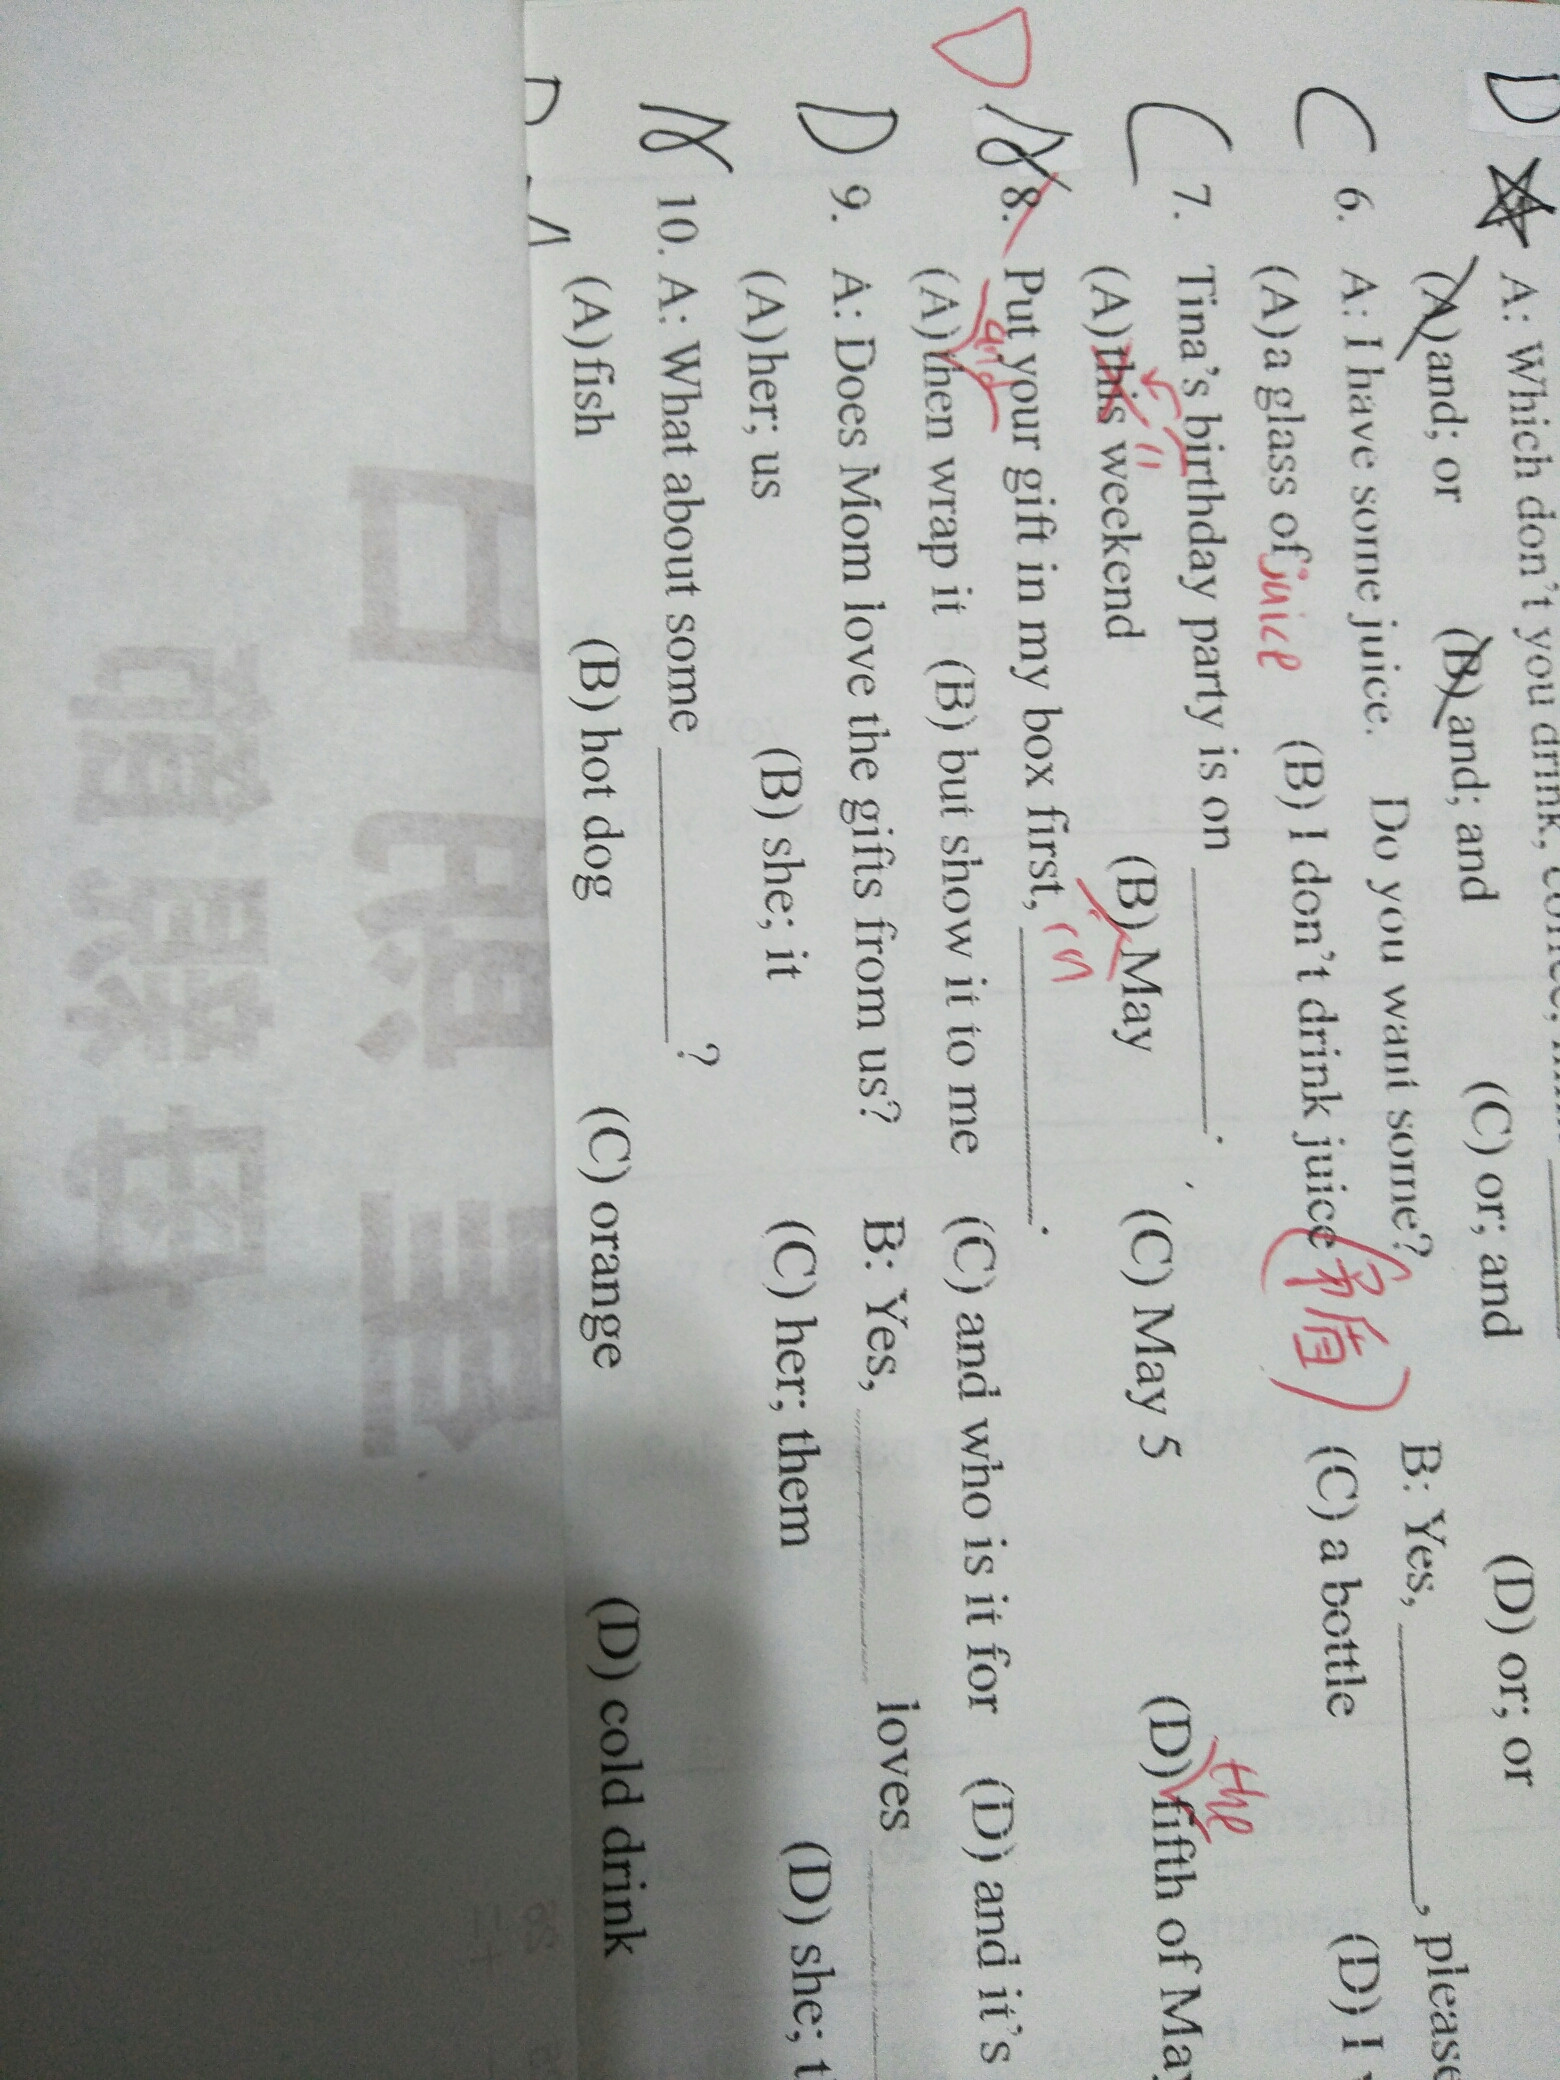 D A: Which don't you drink, coffee,
(A) and; or (B) and; and (C) or; and (D) or; or
C 6. A: I have some juice. Do you want some? B: Yes, ________, please
(A) a glass of juice (B) I don't drink juice (矛盾) (C) a bottle (D) I
C 7. Tina's birthday party is on ________.
(A) this weekend (B) May (C) May 5 (D) the fifth of May
in
D 8. Put your gift in my box first, ________.
and
(A) then wrap it (B) but show it to me (C) and who is it for (D) and it's
D 9. A: Does Mom love the gifts from us? B: Yes, ________ loves ________
(A) her; us (B) she; it (C) her; them (D) she;
10. A: What about some ________?
(A) fish (B) hot dog (C) orange (D) cold drink